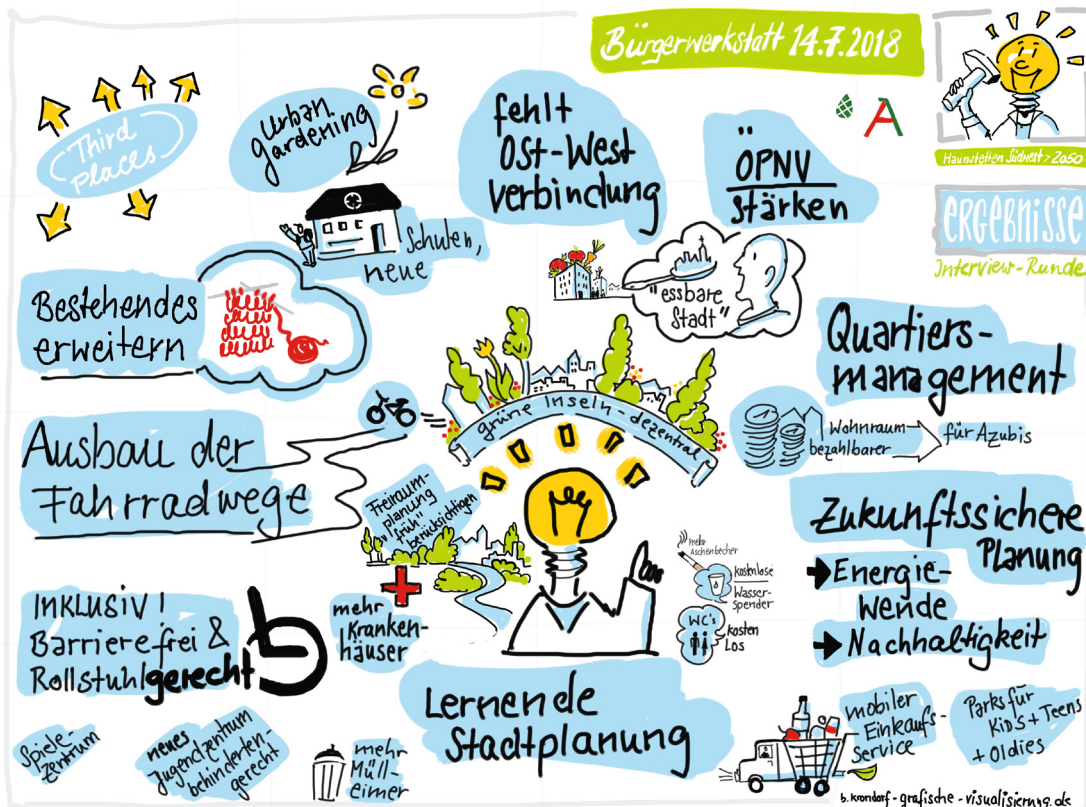 Bürgerwerkstatt 14.7.2018
Haunstetten Südwest > 2050
ERGEBNISSE
Interview-Runde
Third
Places
Urban
gardening
fehlt
Ost-West
verbindung
ÖPNV
stärken
A
Schulen,
neue
"essbare
Stadt"
Bestehendes
erweitern
Quartiers-
management
grüne Inseln - dezentral
Wohnraum
bezahlbarer
für Azubis
Ausbau der
Fahrradwege
Freiraum-
planung
"früh"
berücksichtigen
Zukunftssichere
Planung
Energie-
wende
Nachhaltigkeit
mehr
Aschenbecher
kostenlose
Wasser-
spender
WC's
kosten
Los
INKLUSIV!
Barrierefrei &
Rollstuhlgerecht
mehr
Kranken-
häuser
Lernende
Stadtplanung
Spiele-
zentrum
neues
Jugendzentrum
behinderten-
gerecht
mehr
Müll-
eimer
mobiler
Einkaufs-
Service
Parks für
KiD's + Teens
+ Oldies
b.krondorf-grafische-visualisierung.de